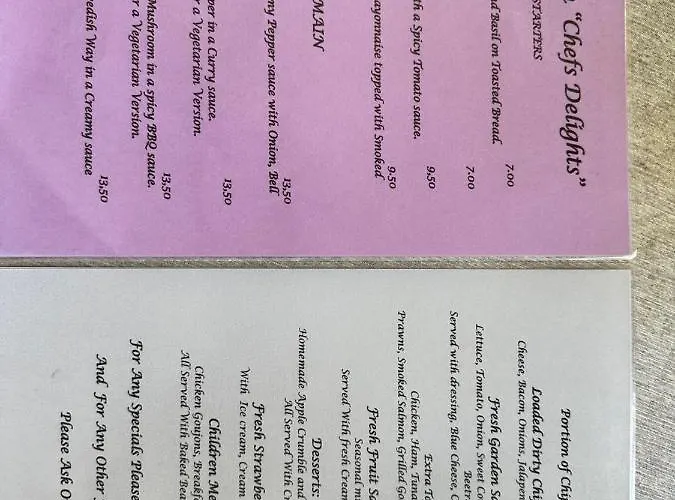 "Chefs Delights"
STARTERS
Basil on Toasted Bread.
7.00
7.00
a Spicy Tomato sauce.
9.50
topped with Smoked
9.50
MAIN
Pepper sauce with Onion, Bell
13.50
in a Curry sauce.
a Vegetarian Version.
13.50
Mushroom in a spicy BBQ sauce.
a Vegetarian Version.
13.50
Way in a Creamy sauce
13.50
Portion of
Loaded Dirty
Cheese, Bacon, Onions,
Fresh Garden
Lettuce, Tomato, Onion, Sweet
Served with dressing, Blue Cheese,
Extra
Chicken, Ham, Tuna
Prawns, Smoked Salmon, Grilled
Fresh Fruit
Seasonal
Served With fresh
Desserts:
Homemade Apple Crumble and
All Served With
Fresh
With Ice cream, Cream
Children
Chicken Goujons,
All Served With Baked
For Any Specials Please
And For Any Other
Please Ask